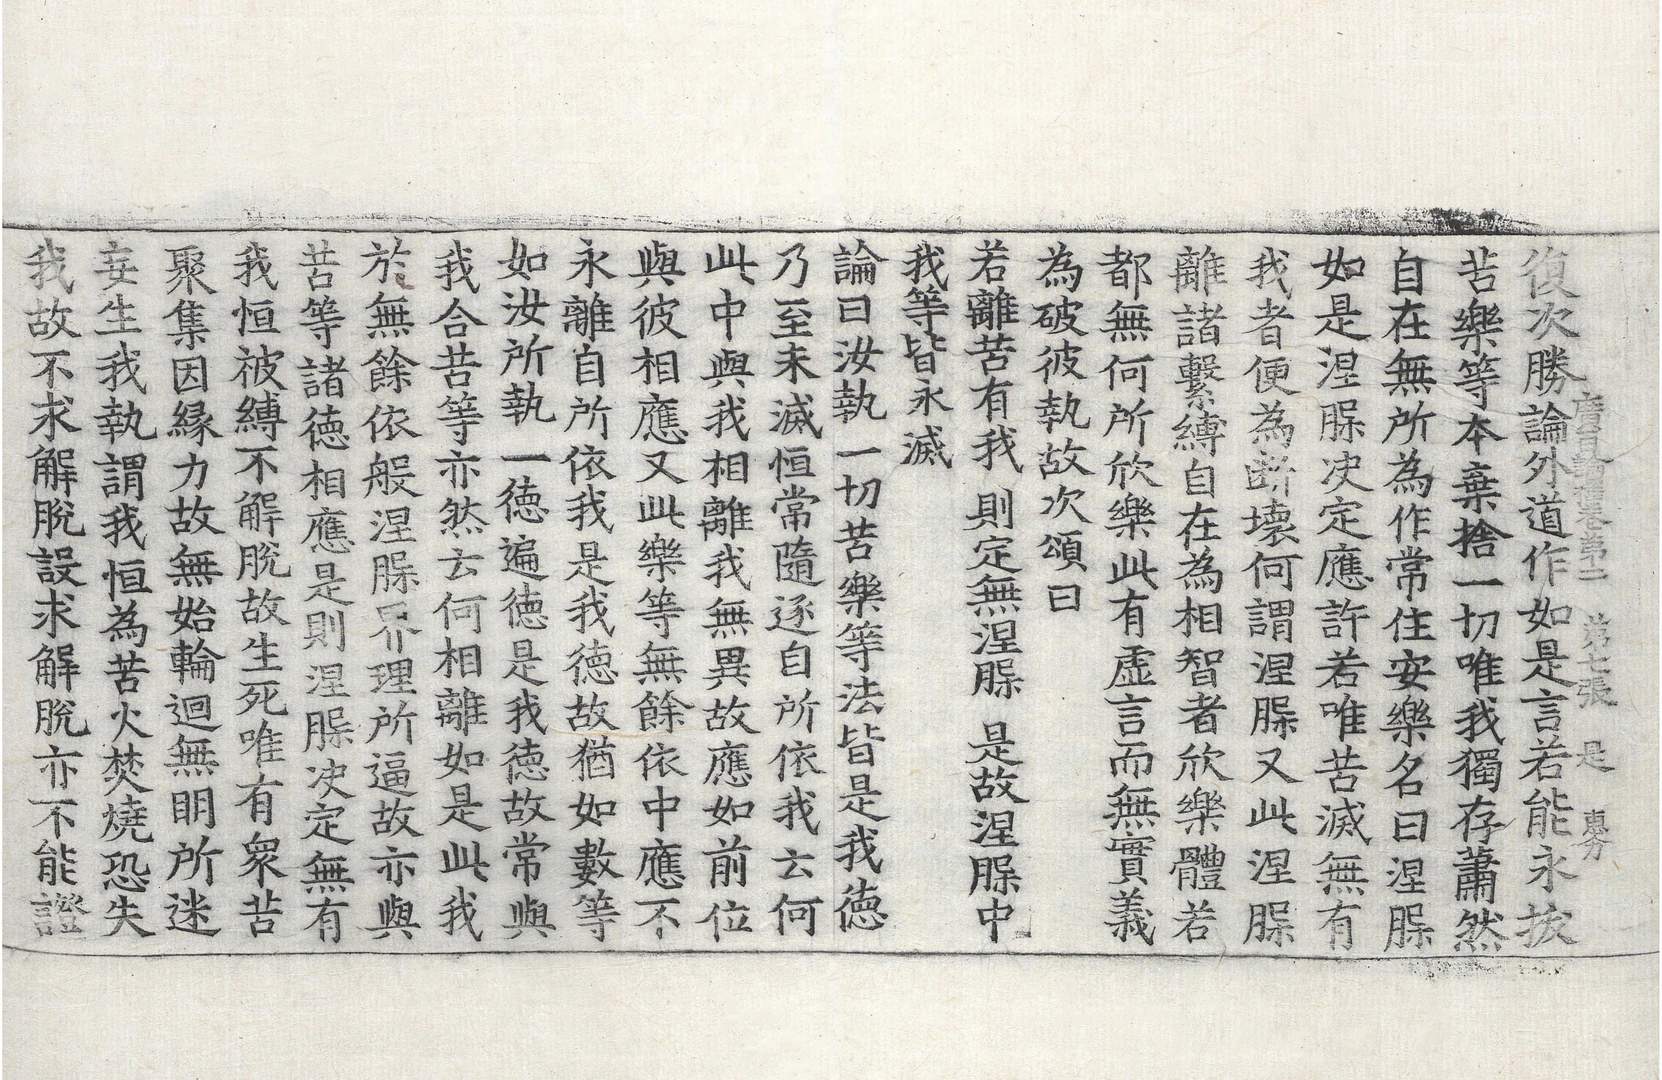 廣百論釋卷第二　第七張　是　東㓛
復次勝論外道作如是言若能永拔
苦樂等本棄捨一切唯我獨存蕭然
自在無所為作常住安樂名曰涅槃
如是涅槃决定應許若唯苦滅無有
我者便為斷壞何謂涅槃又此涅槃
離諸繫縛自在為相智者欣樂體若
都無何所欣樂此有虛言而無實義
為破彼執故次頌曰
若離苦有我　則定無涅槃　是故涅槃中
我等皆永滅
論曰汝執一切苦樂等法皆是我德
乃至未滅恒常隨逐自所依我云何
此中與我相離我無異故應如前位
與彼相應又此樂等無餘依中應不
永離自所依我是我德故猶如數等
如汝所執一德遍德是我德故常與
我合苦等亦然云何相離如是此我
於無餘依般涅槃界理所逼故亦與
苦等諸德相應是則涅槃决定無有
我恒被縛不解脫故生死唯有衆苦
聚集因緣力故無始輪迴無明所迷
妄生我執謂我恒為苦火焚燒恐失
我故不求解脫設求解脫亦不能證